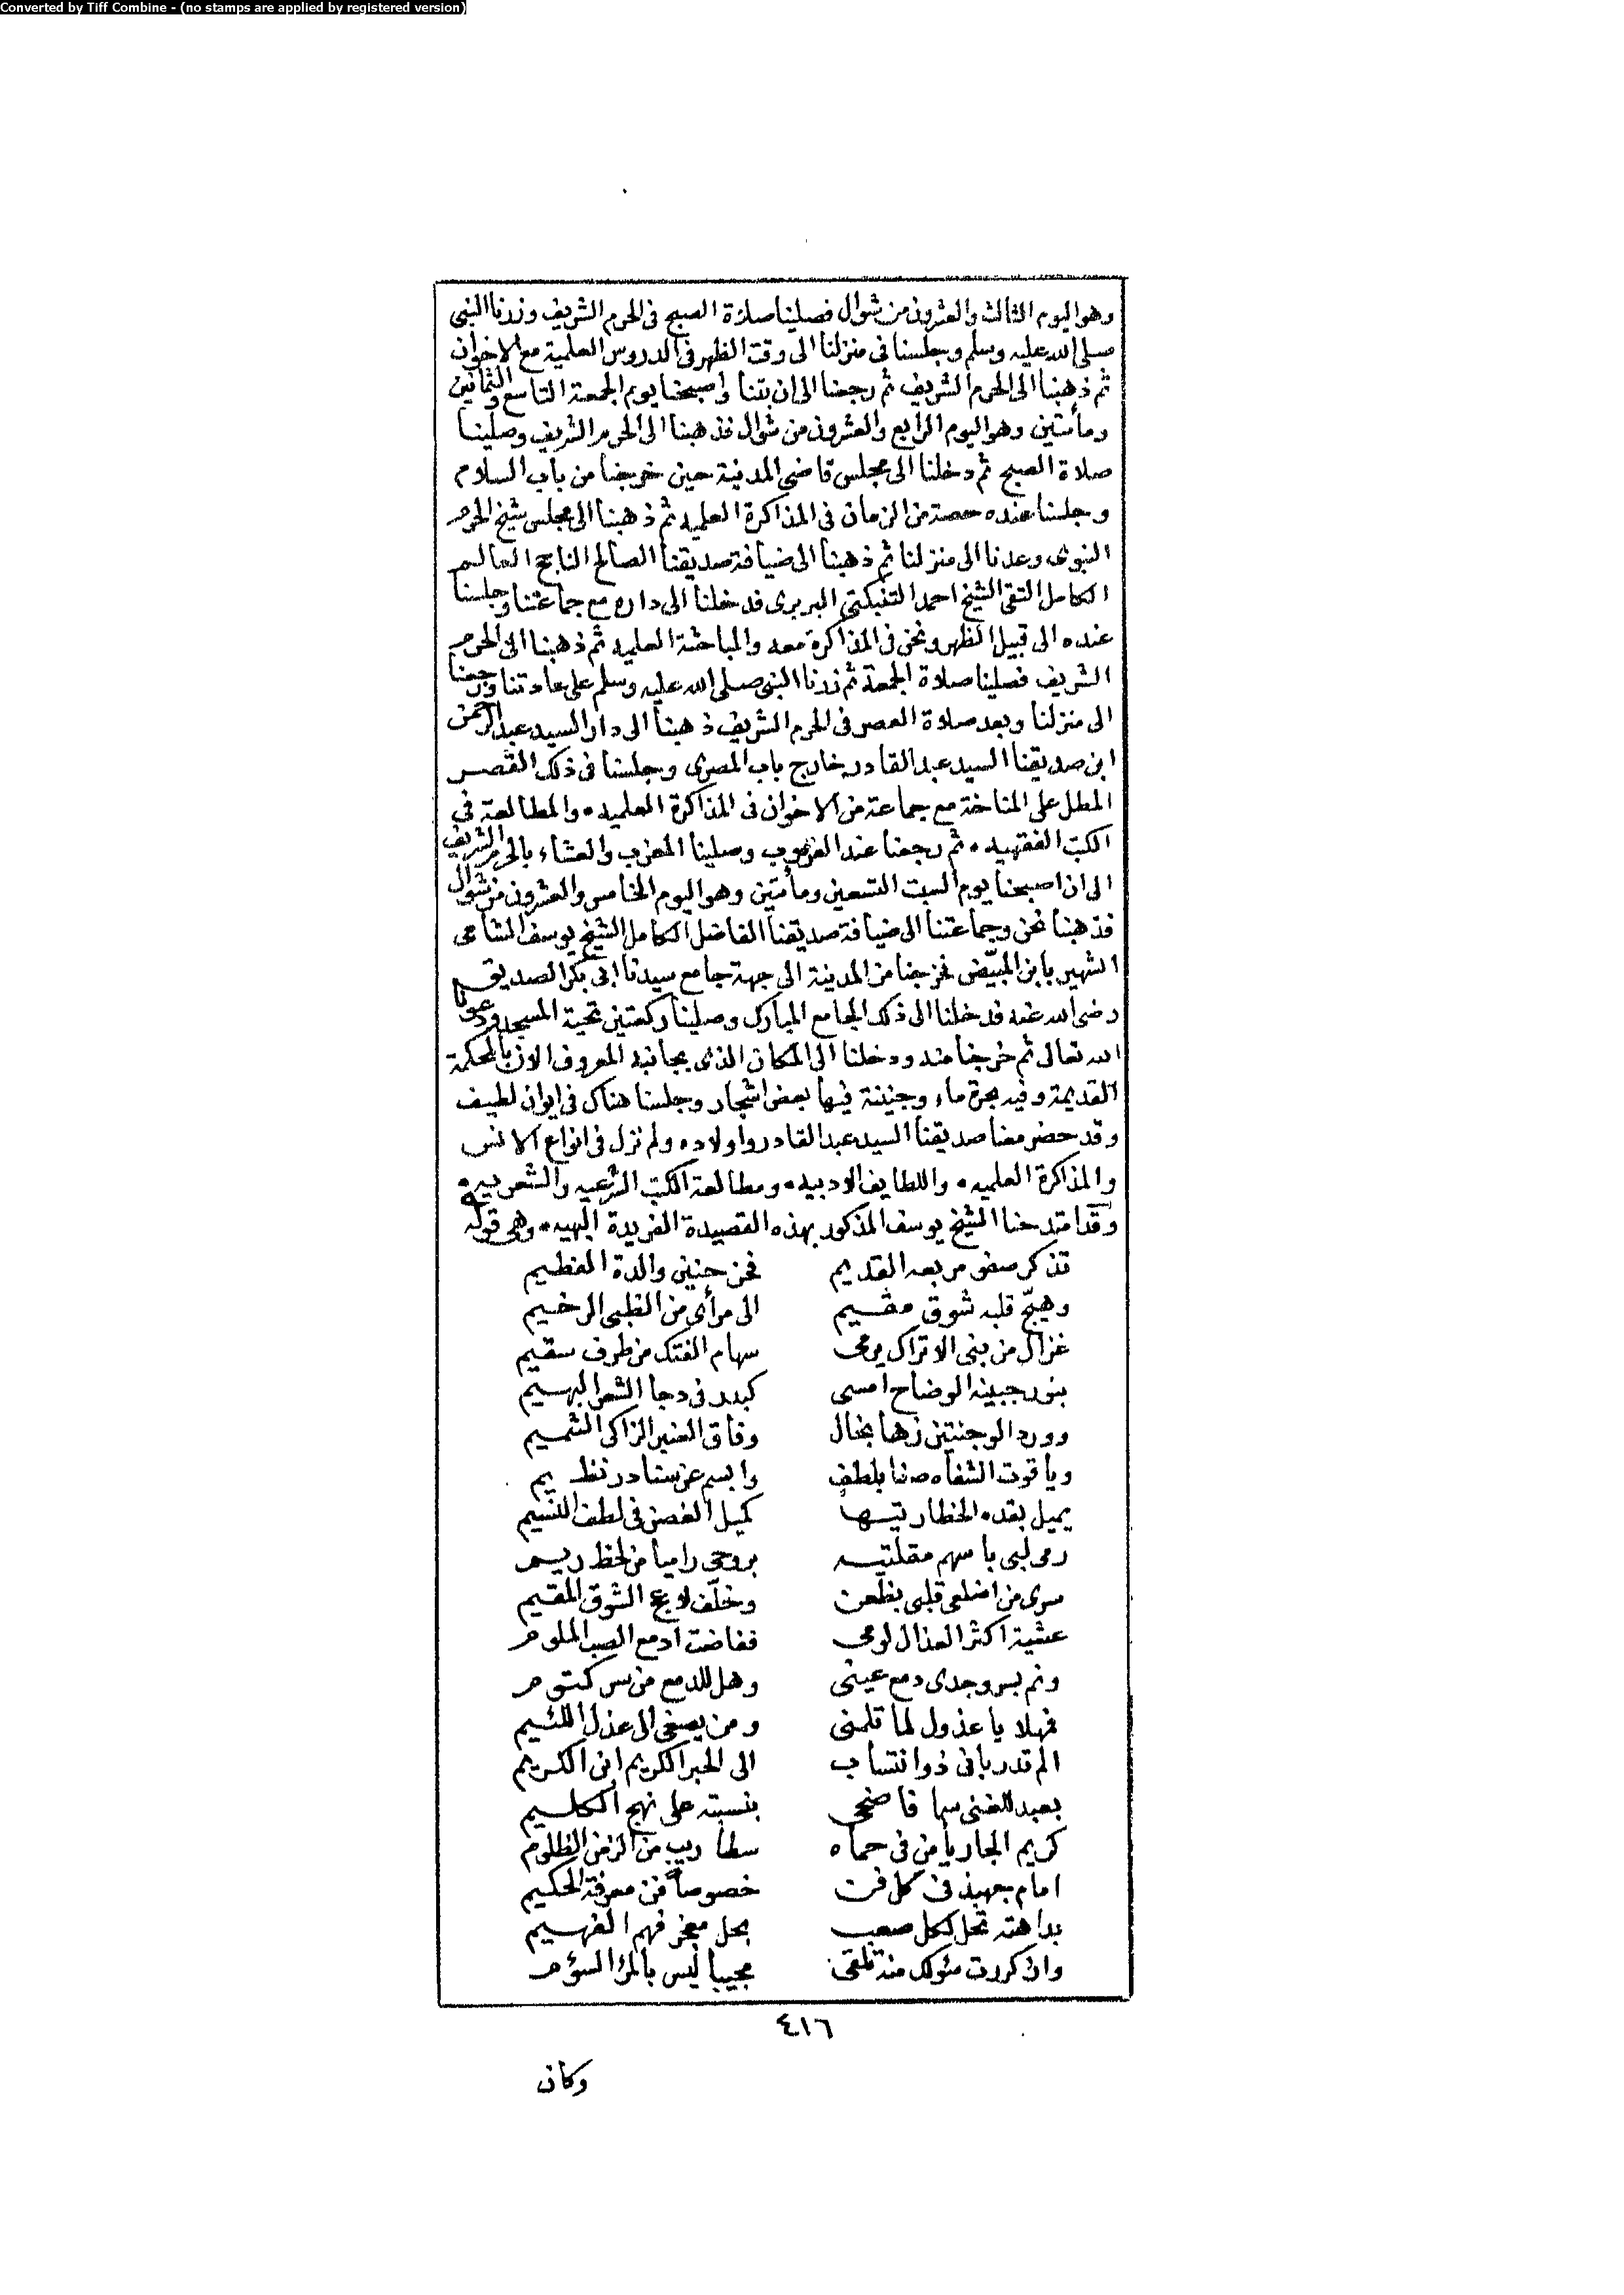 Converted by Tiff Combine - (no stamps are applied by registered version)
وهو اليوم الثالث والعشرون من شوال فصلينا صلاة الصبح فى الحرم الشريف وزرنا النبى
صلى الله عليه وسلم وجلسنا فى منزلنا الى وقت الظهر فى الدروس العلمية مع الاخوان
ثم ذهبنا الى الحرم الشريف ثم رجعنا الى ان بتنا واصبحنا يوم الجمعة التاسع والثمانين
ومأتين وهو اليوم الرابع والعشرون من شوال فذهبنا الى الحرم الشريف وصلينا
صلاة الصبح ثم دخلنا الى مجلس قاضى المدينة حين خرجنا من باب السلام
وجلسنا عنده حصة من الزمان فى المذاكرة العلميه ثم ذهبنا الى مجلس شيخ الحرم
النبوى وعدنا الى منزلنا ثم ذهبنا الى ضيافة صديقنا الصالح الناجح العالم
الكامل التقى الشيخ احمد التنبكتى البربرى فدخلنا الى داره مع جماعتنا وجلسنا
عنده الى قبيل الظهر ونحن فى المذاكرة معه والمباحثة العلميه ثم ذهبنا الى الحرم
الشريف فصلينا صلاة الجمعة ثم زرنا النبى صلى الله عليه وسلم على عادتنا ورجعنا
الى منزلنا وبعد صلاة العصر فى الحرم الشريف ذهبنا الى دار السيد عبد الرحمن
ابن صديقنا السيد عبد القادر خارج باب المصرى وجلسنا فى ذلك القصر
المطل على المناخة مع جماعة من الاخوان فى المذاكرة العلميه • والمطالعة فى
الكتب الفقهيه • ثم رجعنا عند الغروب وصلينا المغرب والعشاء بالحرم الشريف
الى ان اصبحنا يوم السبت التسعين ومأتين وهو اليوم الخامس والعشرون من شوال
فذهبنا نحن وجماعتنا الى ضيافة صديقنا الفاضل الكامل الشيخ يوسف الشافعى
الشهير بابن المبيّض فخرجنا من المدينة الى جهة جامع سيدنا ابى بكر الصديق
رضى الله عنه فدخلنا الى ذلك الجامع المبارك وصلينا ركعتين تحية المسجد ودعونا
الله تعالى ثم خرجنا منه ودخلنا الى المكان الذى بجانبه المعروف الان بالمحكمة
القديمة وفيه بحرة ماء وجنينة فيها بعض اشجار وجلسنا هناك فى ايوان لطيف
وقد حضر معنا صديقنا السيد عبد القادر واولاده ولم نزل فى انواع الانس
والمذاكرة العلميه • واللطايف الادبيه • ومطالعة الكتب الشرعيه والشعريه •
وقد امتدحنا الشيخ يوسف المذكور بهذه القصيدة الفريدة البهيه • وهى قوله
تذكر صفو مربعه القديم فحن حنين والدة الفطيم
وهيّج قلبه شوق مقيم الى مرأى من الظبى الرخيم
غزال من بنى الاتراك يرمى سهام الفتك من طرف سقيم
بنور جبينه الوضاح امسى كبدر فى دجا الشعر البهيم
وورد الوجنتين زها بخال وفاق العنبر الزاكى الشميم
وياقوت الشفاه صفا بلطف وابسم عن سنا در نظيم
يميل بقده الخطار تيها كميل الغصن فى لطف النسيم
رمى لبى باسهم مقلتيه بروحى راميا من لحظ ريم
سرى من اضلعى قلبى بظعن وخلّف لاعج الشوق المقيم
عشية اكثر العذال لومى ففاضت ادمع الصب الملوم
ونم بسر وجدى دمع عينى وهل للدمع من سر كتوم
فمهلا يا عذول لما تلمنى ومن يصغى الى عذل اللئيم
الم تدر بانى ذو انتساب الى الحبر الكريم ابن الكريم
بعبد للغنى سما فاضحى بنسبته على نهج الكليم
كريم الجار يأمن فى حماه سطا ريب من الزمن الظلوم
امام جهبذ فى كل فن خصوصاً فن معرفة الحكيم
بداهته تحل لكل صعب بحل معجز فهم الفهيم
وان كررت سئولك منه تلقى مجيبا ليس بالمرا السؤم
٤١٦
وكان